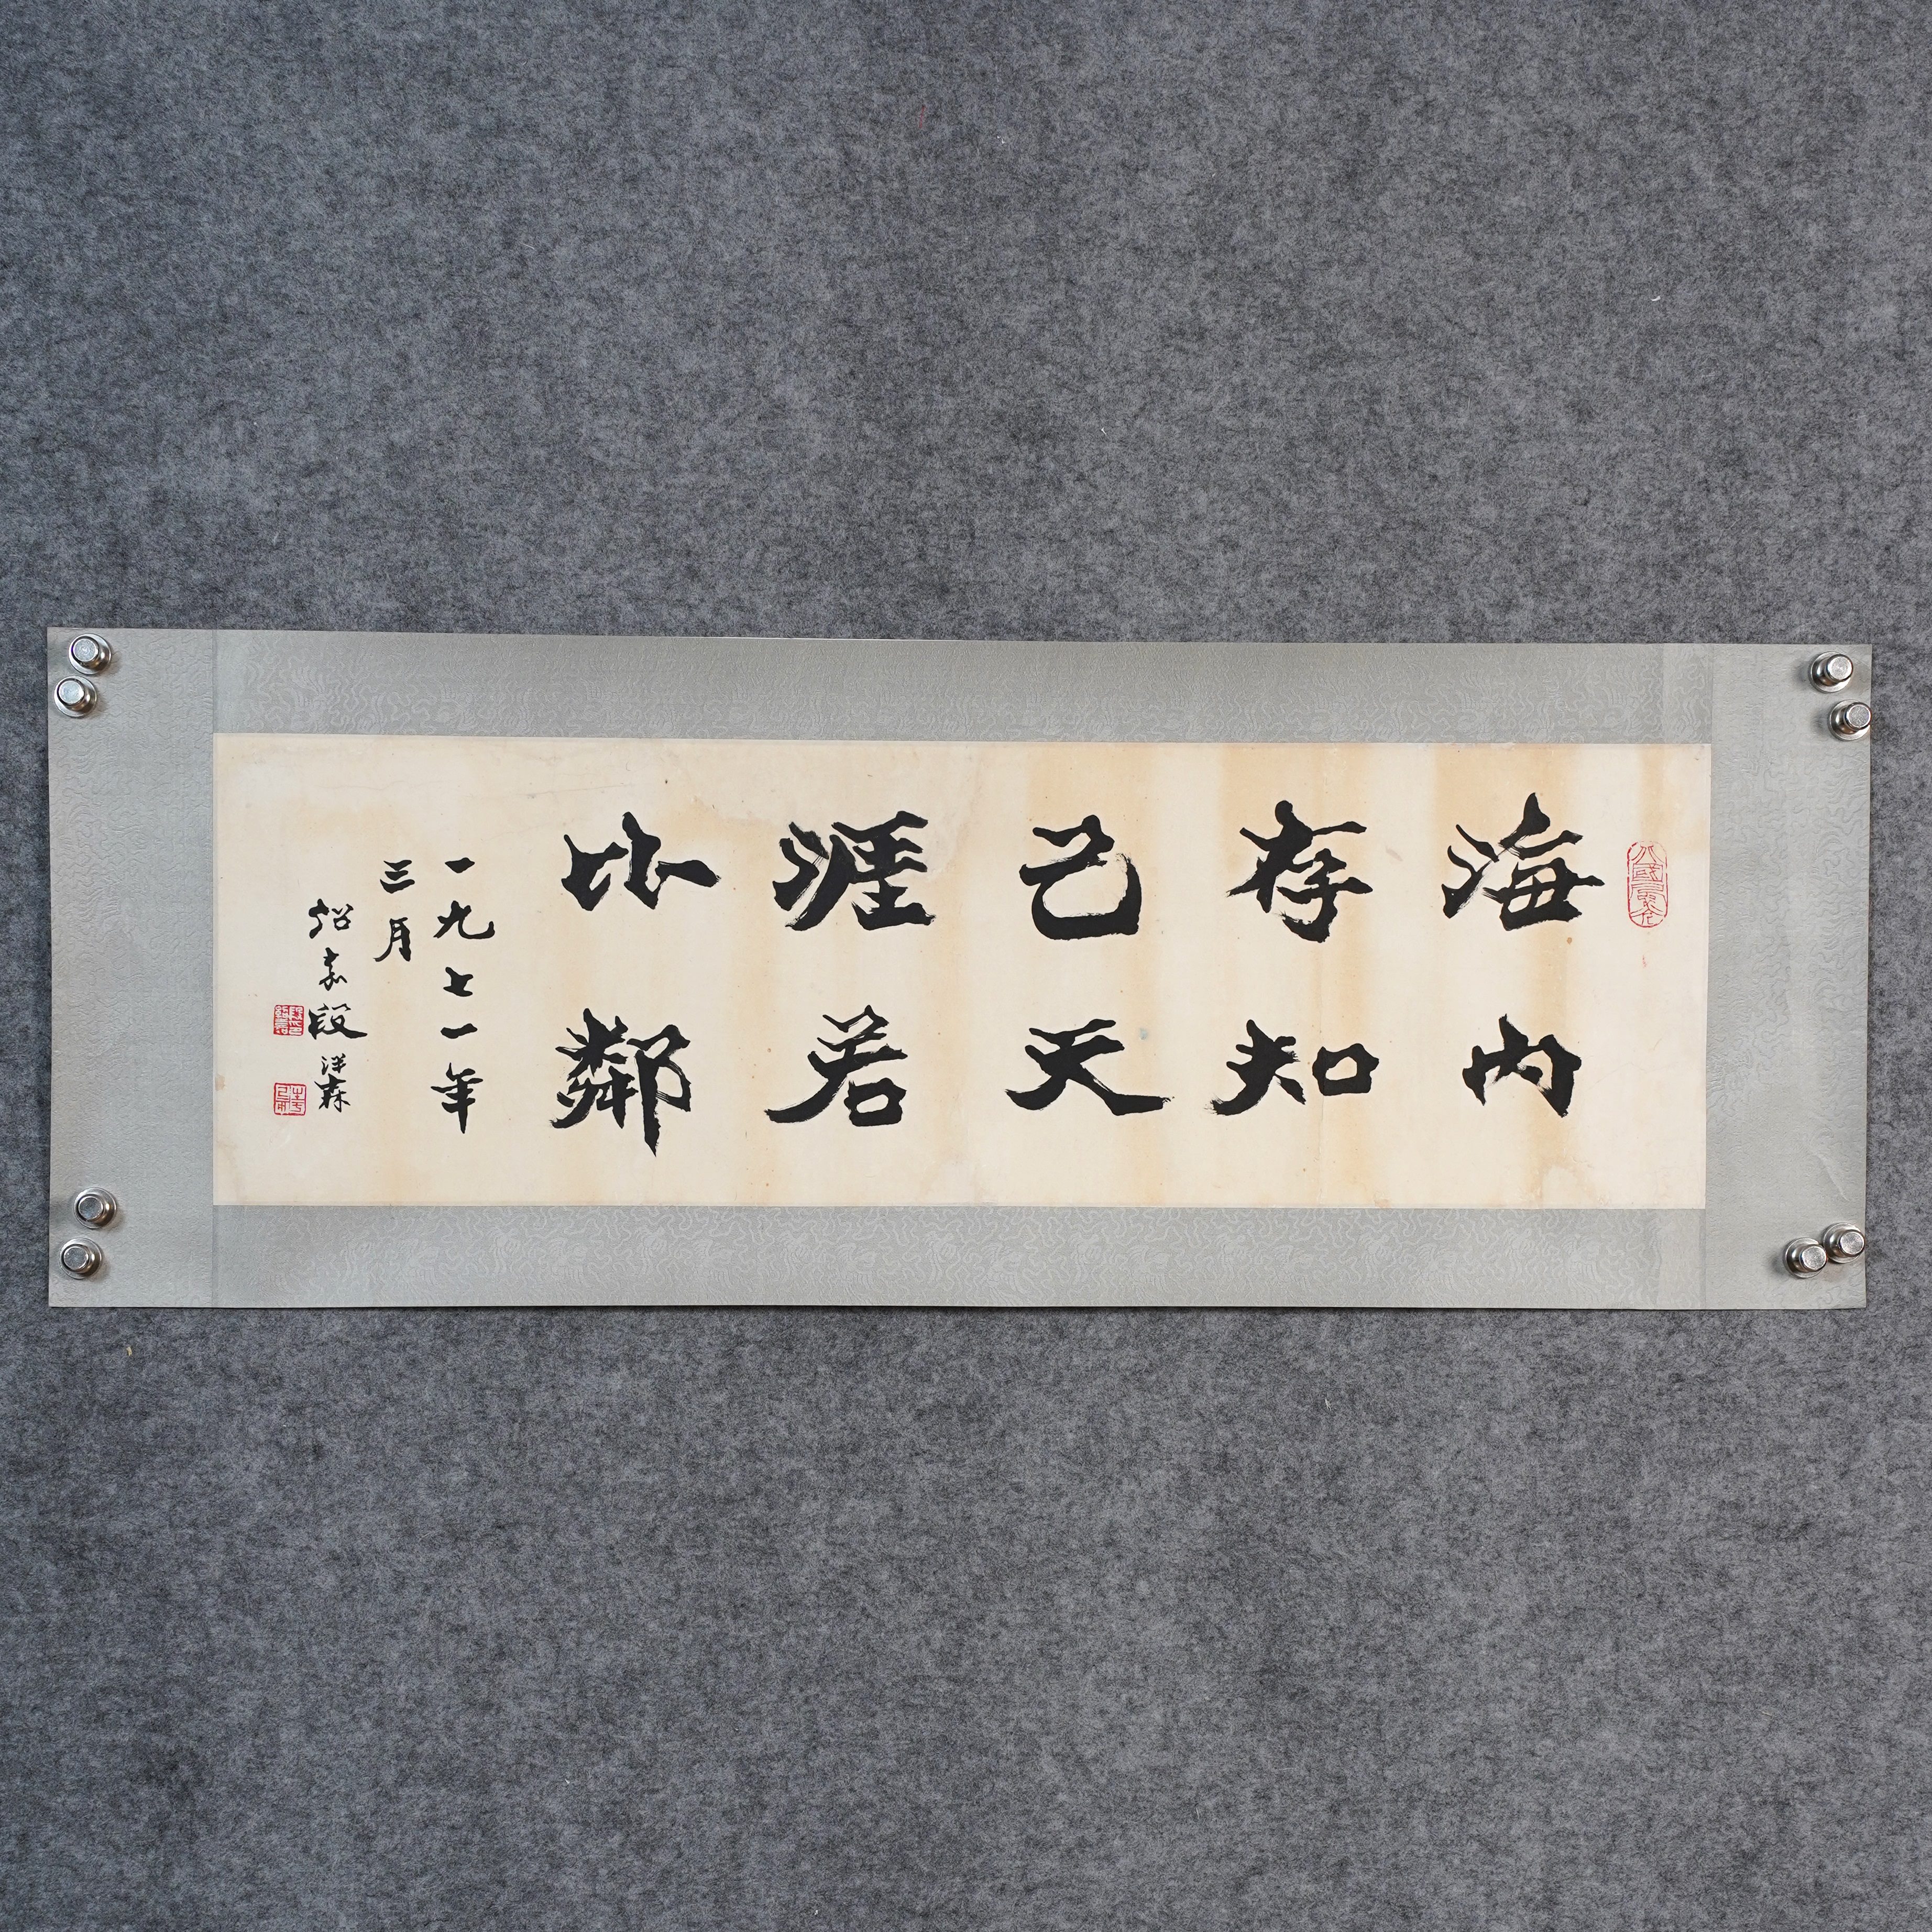 海内
存知
己天
涯若
比鄰
一九七一年
三月
紹嘉段洋霖